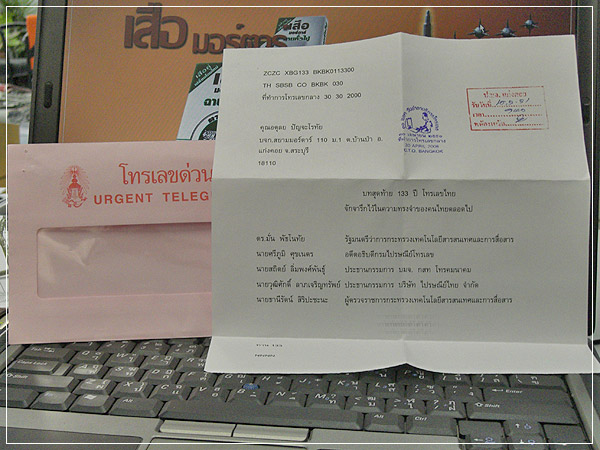 เสือ
มอร์ตาร์
เสือ
โทรเลขด่วน
URGENT TELEG
ZCZC XBG133 BKBK0113300
TH SBSB CO BKBK 030
ที่ทำการโทรเลขกลาง 30 30 2000
คุณอดุลย ปัญจะโรทัย
บจก.สยามมอร์ตาร์ 110 ม.1 ต.บ้านป่า อ.
แก่งคอย จ.สระบุรี
18110
30 APRIL 2008
C.T.O. BANGKOK
บทสุดท้าย 133 ปี โทรเลขไทย
จักจารึกไว้ในความทรงจำของคนไทยตลอดไป
ดร.มั่น พัธโนทัย รัฐมนตรีว่าการกระทรวงเทคโนโลยีสารสนเทศและการสื่อสาร
นายศรีภูมิ ศุขเนตร อดีตอธิบดีกรมไปรษณีย์โทรเลข
นายสถิตย์ ลิ่มพงศ์พันธุ์ ประธานกรรมการ บมจ. กสท โทรคมนาคม
นายวุฒิศักดิ์ ลาภเจริญทรัพย์ ประธานกรรมการ บริษัท ไปรษณีย์ไทย จำกัด
นายธานีรัตน์ ศิริปะชะนะ ผู้ตรวจราชการกระทรวงเทคโนโลยีสารสนเทศและการสื่อสาร
NNNN
Enter
Shift